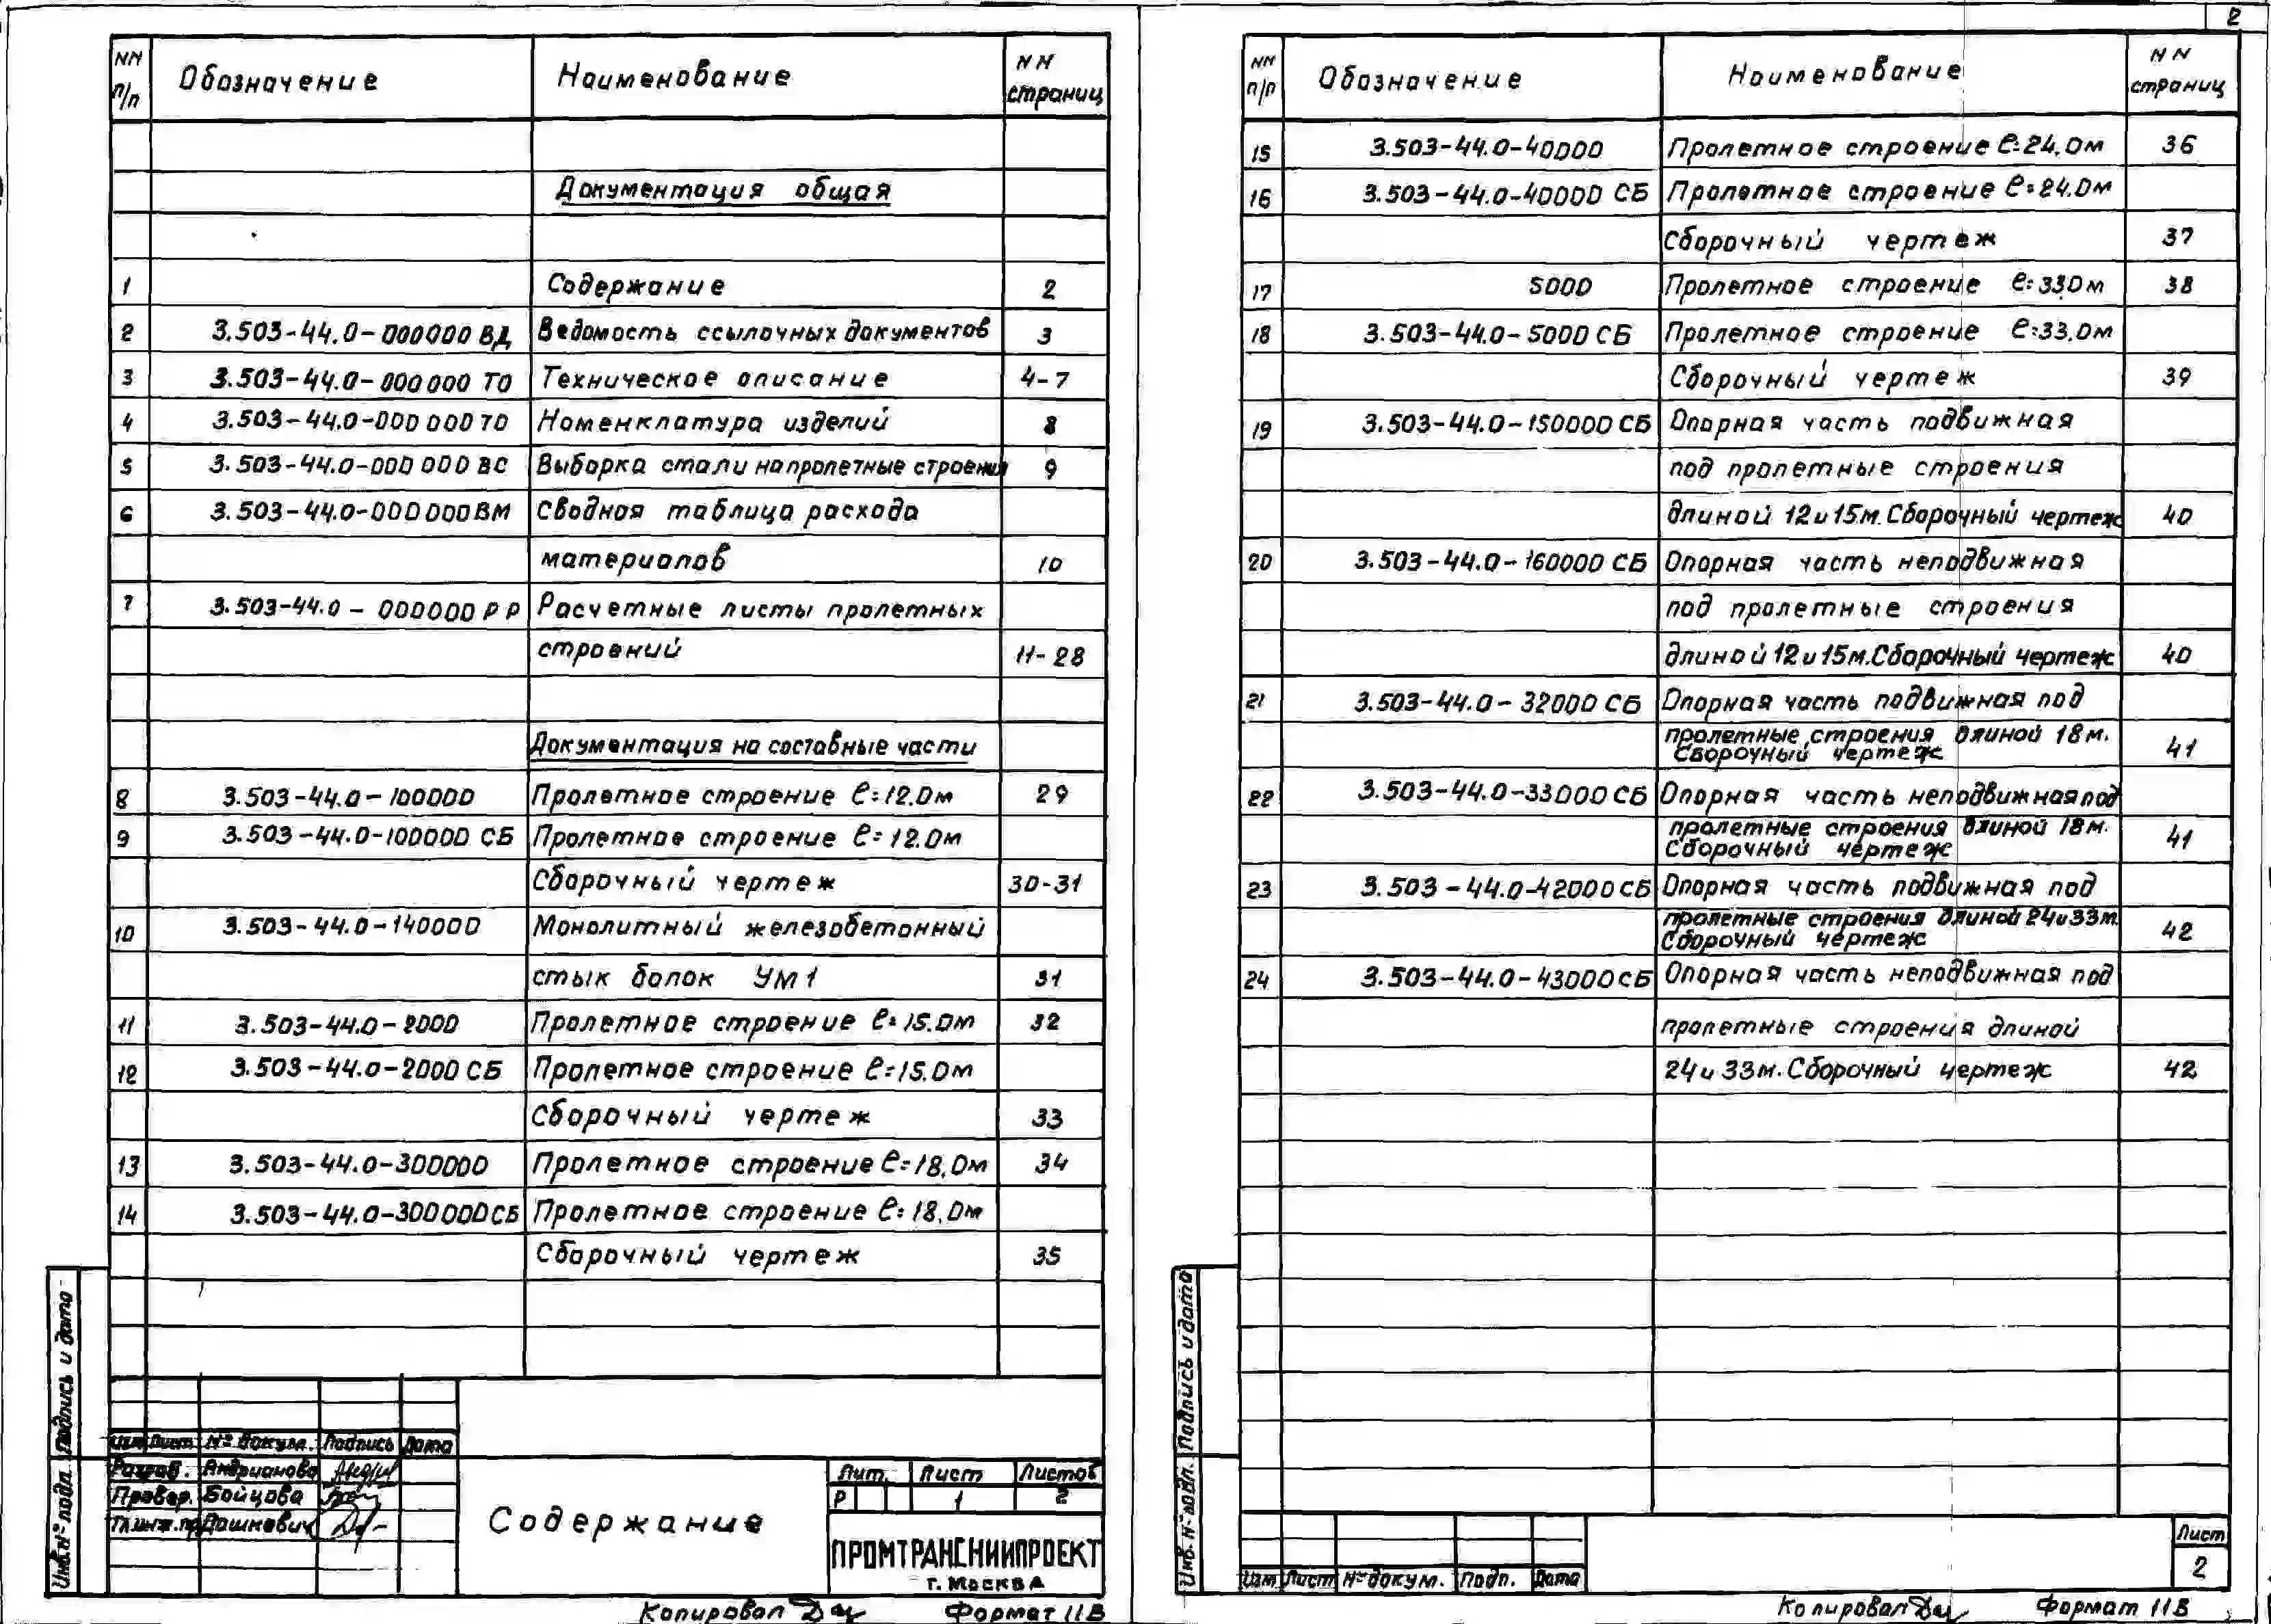 2
NN п/п Обозначение Наименование NN страниц
Документация общая
1 Содержание 2
2 3.503-44.0-000000 ВД Ведомость ссылочных документов 3
3 3.503-44.0-000000 ТО Техническое описание 4-7
4 3.503-44.0-000000 ТО Номенклатура изделий 8
5 3.503-44.0-000000 ВС Выборка стали на пролетные строения 9
6 3.503-44.0-000000 ВМ Сводная таблица расхода
материалов 10
7 3.503-44.0-000000 РР Расчетные листы пролетных
строений 11-28
Документация на составные части
8 3.503-44.0-100000 Пролетное строение ℓ=12.0м 29
9 3.503-44.0-100000 СБ Пролетное строение ℓ=12.0м
Сборочный чертеж 30-31
10 3.503-44.0-140000 Монолитный железобетонный
стык балок УМ1 31
11 3.503-44.0-2000 Пролетное строение ℓ=15.0м 32
12 3.503-44.0-2000 СБ Пролетное строение ℓ=15.0м
Сборочный чертеж 33
13 3.503-44.0-300000 Пролетное строение ℓ=18,0м 34
14 3.503-44.0-300000 СБ Пролетное строение ℓ=18,0м
Сборочный чертеж 35
Подпись и дата
Инв.№ подл.
Изм Лист № докум. Подпись Дата
Разраб. Андрианова
Провер. Бойцова
Гл.инж.пр Дашкевич
Содержание
Лит. Лист Листов
Р 1 2
ПРОМТРАНСНИИПРОЕКТ
г. Москва
Копировал Формат 11В
NN п/п Обозначение Наименование NN страниц
15 3.503-44.0-40000 Пролетное строение ℓ=24,0м 36
16 3.503-44.0-40000 СБ Пролетное строение ℓ=24.0м
Сборочный чертеж 37
17 5000 Пролетное строение ℓ=33,0м 38
18 3.503-44.0-5000 СБ Пролетное строение ℓ=33,0м
Сборочный чертеж 39
19 3.503-44.0-150000 СБ Опорная часть подвижная
под пролетные строения
длиной 12 и 15м. Сборочный чертеж 40
20 3.503-44.0-160000 СБ Опорная часть неподвижная
под пролетные строения
длиной 12 и 15м. Сборочный чертеж 40
21 3.503-44.0-32000 СБ Опорная часть подвижная под
пролетные строения длиной 18м.
Сборочный чертеж 41
22 3.503-44.0-33000 СБ Опорная часть неподвижная под
пролетные строения длиной 18м.
Сборочный чертеж 41
23 3.503-44.0-42000 СБ Опорная часть подвижная под
пролетные строения длиной 24 и 33м
Сборочный чертеж 42
24 3.503-44.0-43000 СБ Опорная часть неподвижная под
пролетные строения длиной
24 и 33м. Сборочный чертеж 42
Подпись и дата
Инв.№ подл.
Изм Лист № докум. Подп. Дата
Лист
2
Копировал Формат 11В